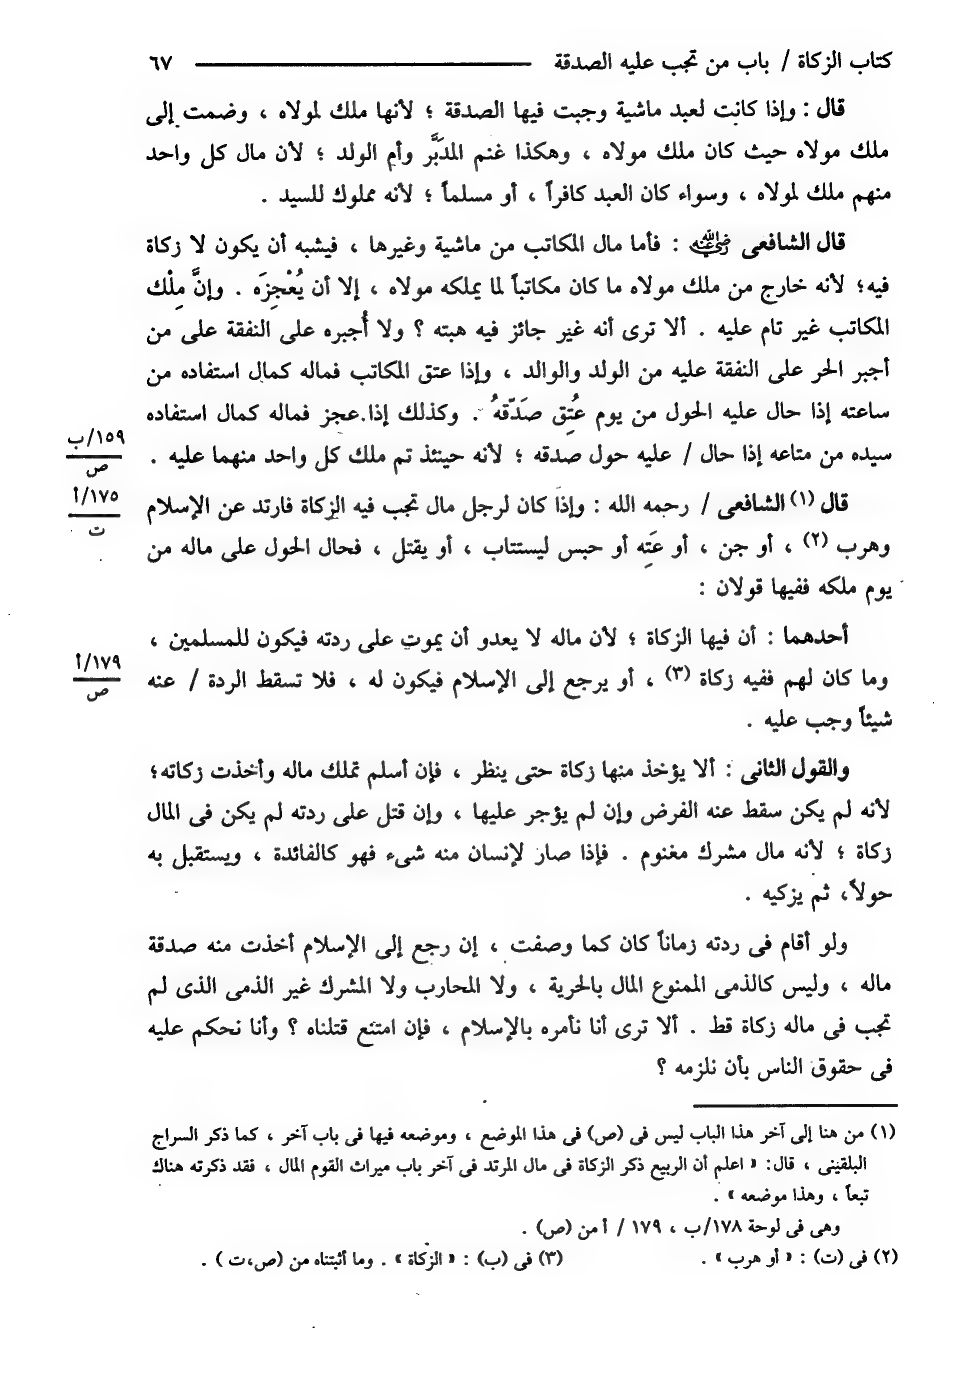 كتاب الزكاة / باب من تجب عليه الصدقة ــــــــــ ٦٧
قال : وإذا كانت لعبد ماشية وجبت فيها الصدقة ؛ لأنها ملك لمولاه ، وضمت إلى
ملك مولاه حيث كان ملك مولاه ، وهكذا غنم المدَبَّر وأم الولد ؛ لأن مال كل واحد
منهم ملك لمولاه ، وسواء كان العبد كافراً ، أو مسلماً ؛ لأنه مملوك للسيد .
قال الشافعى رضي الله عنه : فأما مال المكاتب من ماشية وغيرها ، فيشبه أن يكون لا زكاة
فيه؛ لأنه خارج من ملك مولاه ما كان مكاتباً لما يملكه مولاه ، إلا أن يُعْجِزَه . وإنَّ مِلْك
المكاتب غير تام عليه . ألا ترى أنه غير جائز فيه هبته ؟ ولا أُجبره على النفقة على من
أجبر الحر على النفقة عليه من الولد والوالد ، وإذا عتق المكاتب فماله كمال استفاده من
ساعته إذا حال عليه الحول من يوم عُتِق صَدَّقهُ . وكذلك إذا عجز فماله كمال استفاده
سيده من متاعه إذا حال / عليه حول صدقه ؛ لأنه حينئذ تم ملك كل واحد منهما عليه .
١٥٩/ب
ص
قال (١) الشافعى / رحمه الله : وإذا كان لرجل مال تجب فيه الزكاة فارتد عن الإسلام
١٧٥/أ
ت
وهرب (٢) ، أو جن ، أو عَتِه أو حبس ليستتاب ، أو يقتل ، فحال الحول على ماله من
يوم ملكه ففيها قولان :
أحدهما : أن فيها الزكاة ؛ لأن ماله لا يعدو أن يموت على ردته فيكون للمسلمين ،
وما كان لهم ففيه زكاة (٣) ، أو يرجع إلى الإسلام فيكون له ، فلا تسقط الردة / عنه
١٧٩/أ
ص
شيئاً وجب عليه .
والقول الثانى : ألا يؤخذ منها زكاة حتى ينظر ، فإن أسلم تملك ماله وأخذت زكاته؛
لأنه لم يكن سقط عنه الفرض وإن لم يؤجر عليها ، وإن قتل على ردته لم يكن فى المال
زكاة ؛ لأنه مال مشرك مغنوم . فإذا صار لإنسان منه شىء فهو كالفائدة ، ويستقبل به
حولاً، ثم يزكيه .
ولو أقام فى ردته زماناً كان كما وصفت ، إن رجع إلى الإسلام أخذت منه صدقة
ماله ، وليس كالذمى الممنوع المال بالحرية ، ولا المحارب ولا المشرك غير الذمى الذى لم
تجب فى ماله زكاة قط . ألا ترى أنا نأمره بالإسلام ، فإن امتنع قتلناه ؟ وأنا نحكم عليه
فى حقوق الناس بأن نلزمه ؟
(١) من هنا إلى آخر هذا الباب ليس فى (ص) فى هذا الموضع ، وموضعه فيها فى باب آخر ، كما ذكر السراج
البلقينى ، قال: « اعلم أن الربيع ذكر الزكاة فى مال المرتد فى آخر باب ميراث القوم المال ، فقد ذكرته هناك
تبعاً ، وهذا موضعه » .
وهى فى لوحة ١٧٨/ب ، ١٧٩ / أ من (ص) .
(٢) فى (ت) : « أو هرب » . (٣) فى (ب) : « الزكاة » . وما أثبتناه من (ص،ت ) .